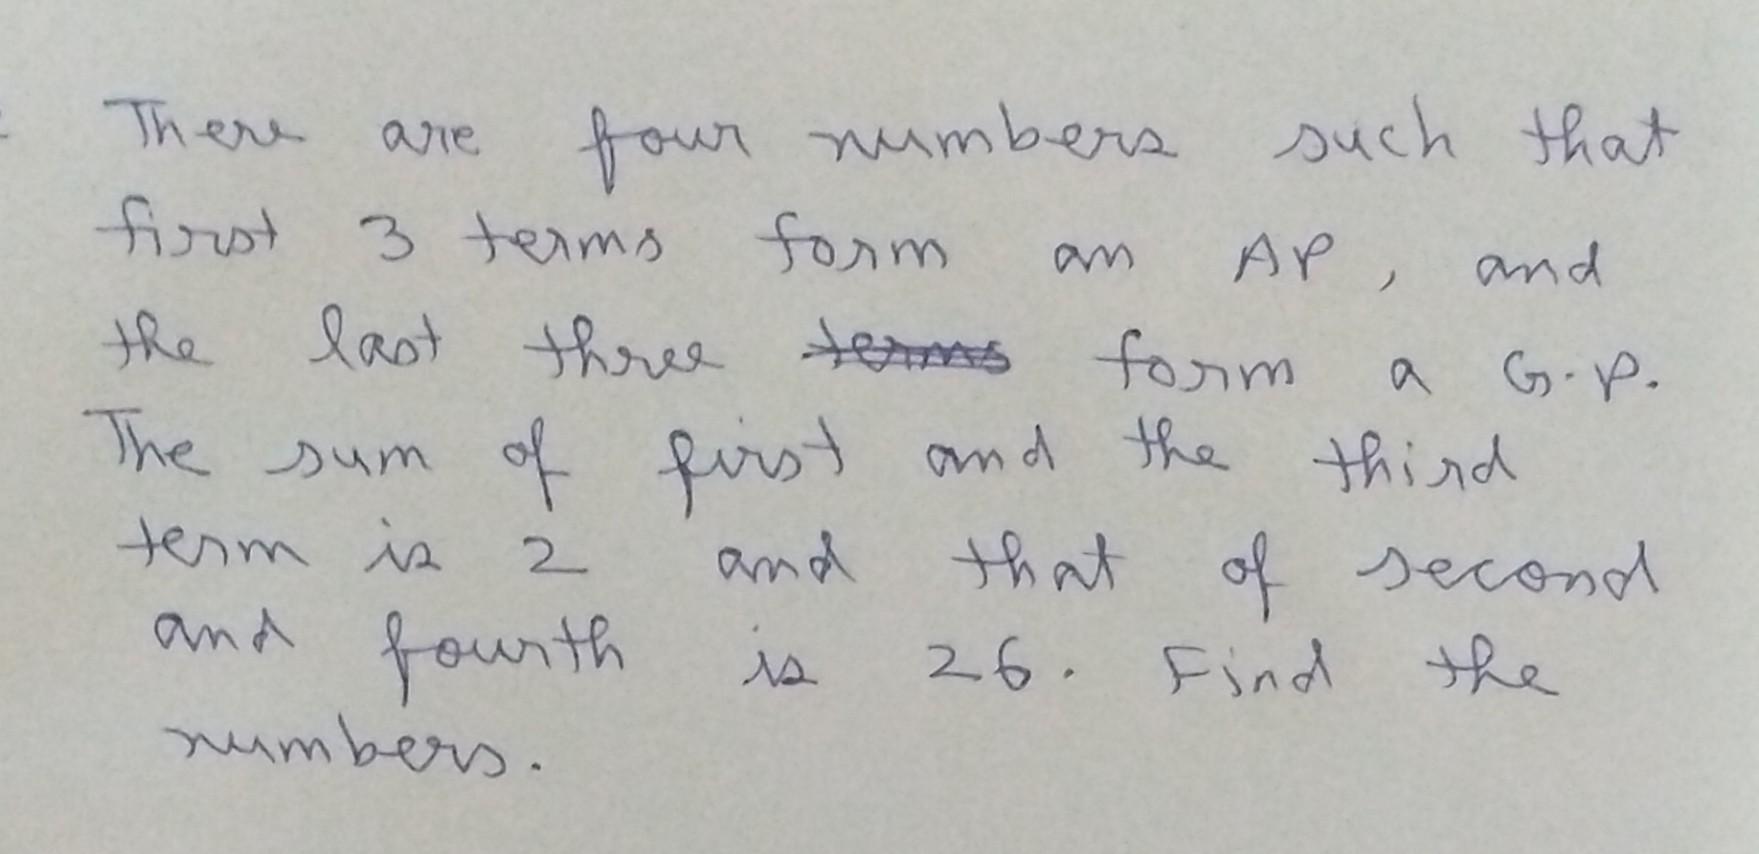 There are four numbers such that
first 3 terms form an AP, and
the last three terms form a G.P.
The sum of first and the third
term is 2 and that of second
and fourth is 26. Find the
numbers.